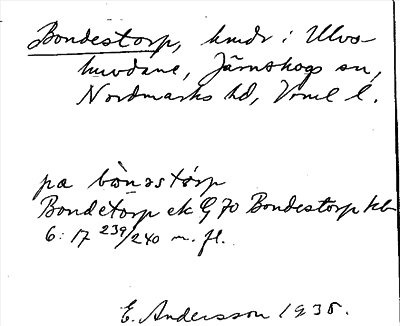 Bondestorp, hmdr i Ulvs-
huvdane, Järnskogs sn,
Nordmarks hd, Vrml l.
pa bònastórp
Bondetorp ek G 70 Bondestorp kb
6:17 239/240 m. fl.
E. Andersson 1935.